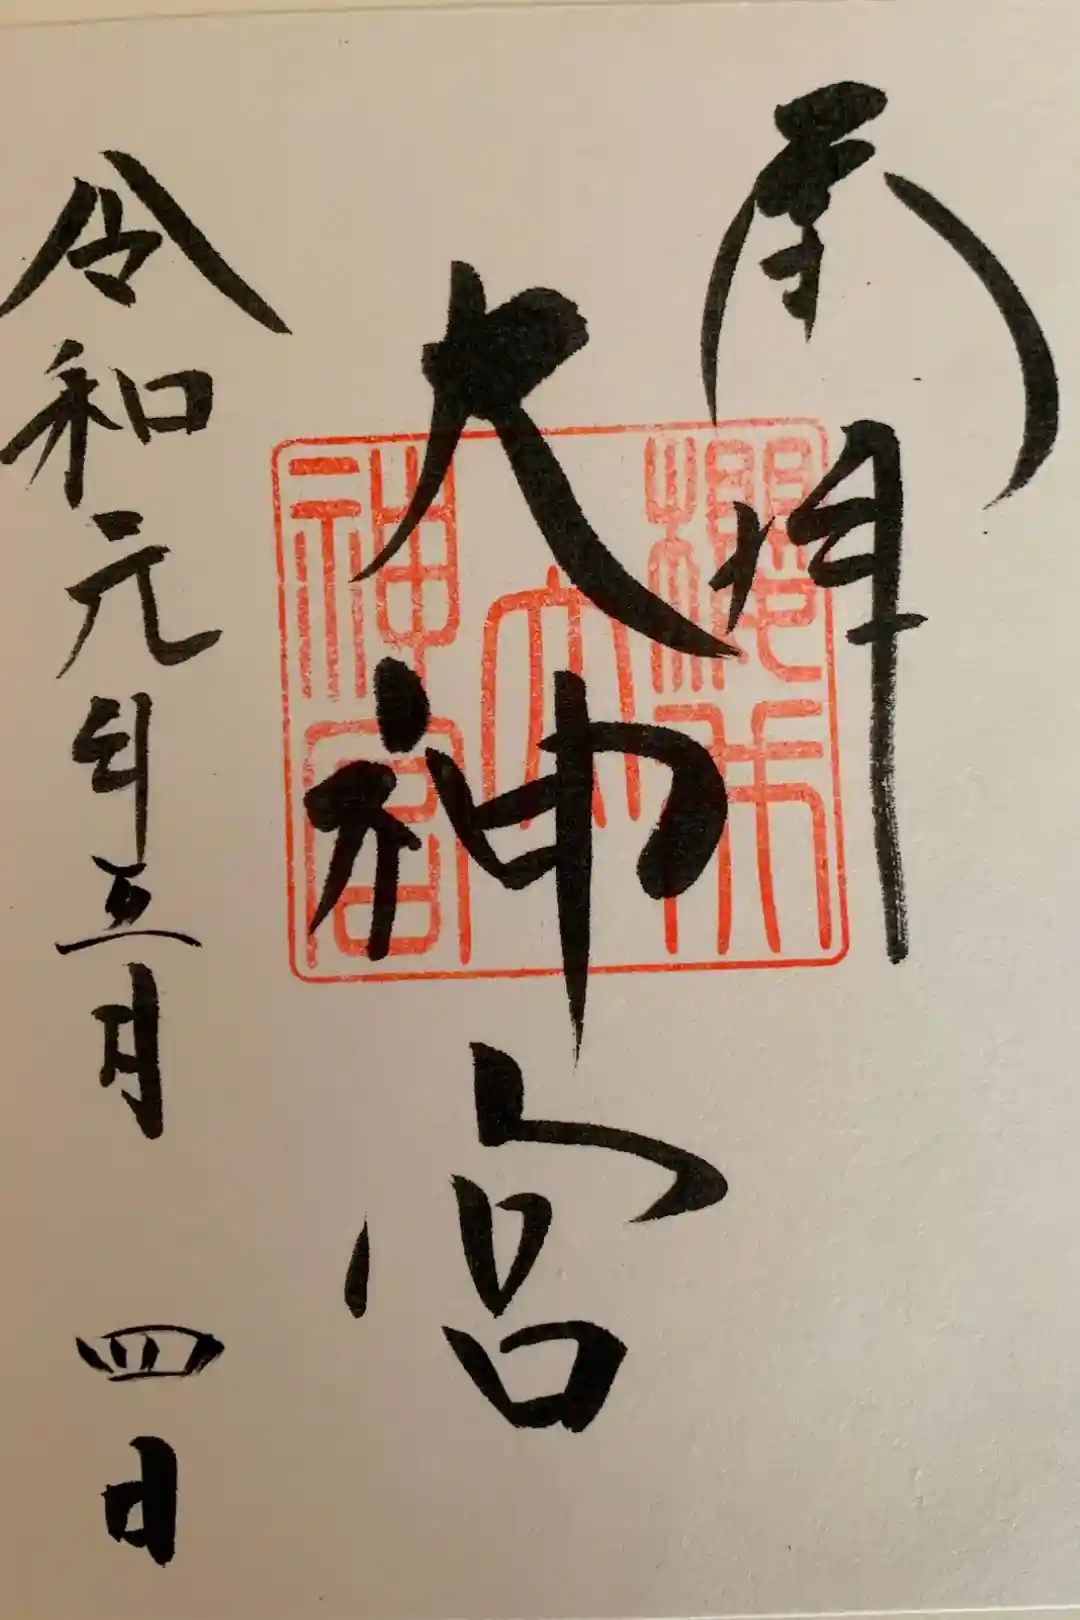 奉拝
大神宮
令和元年五月四日
大
神宮